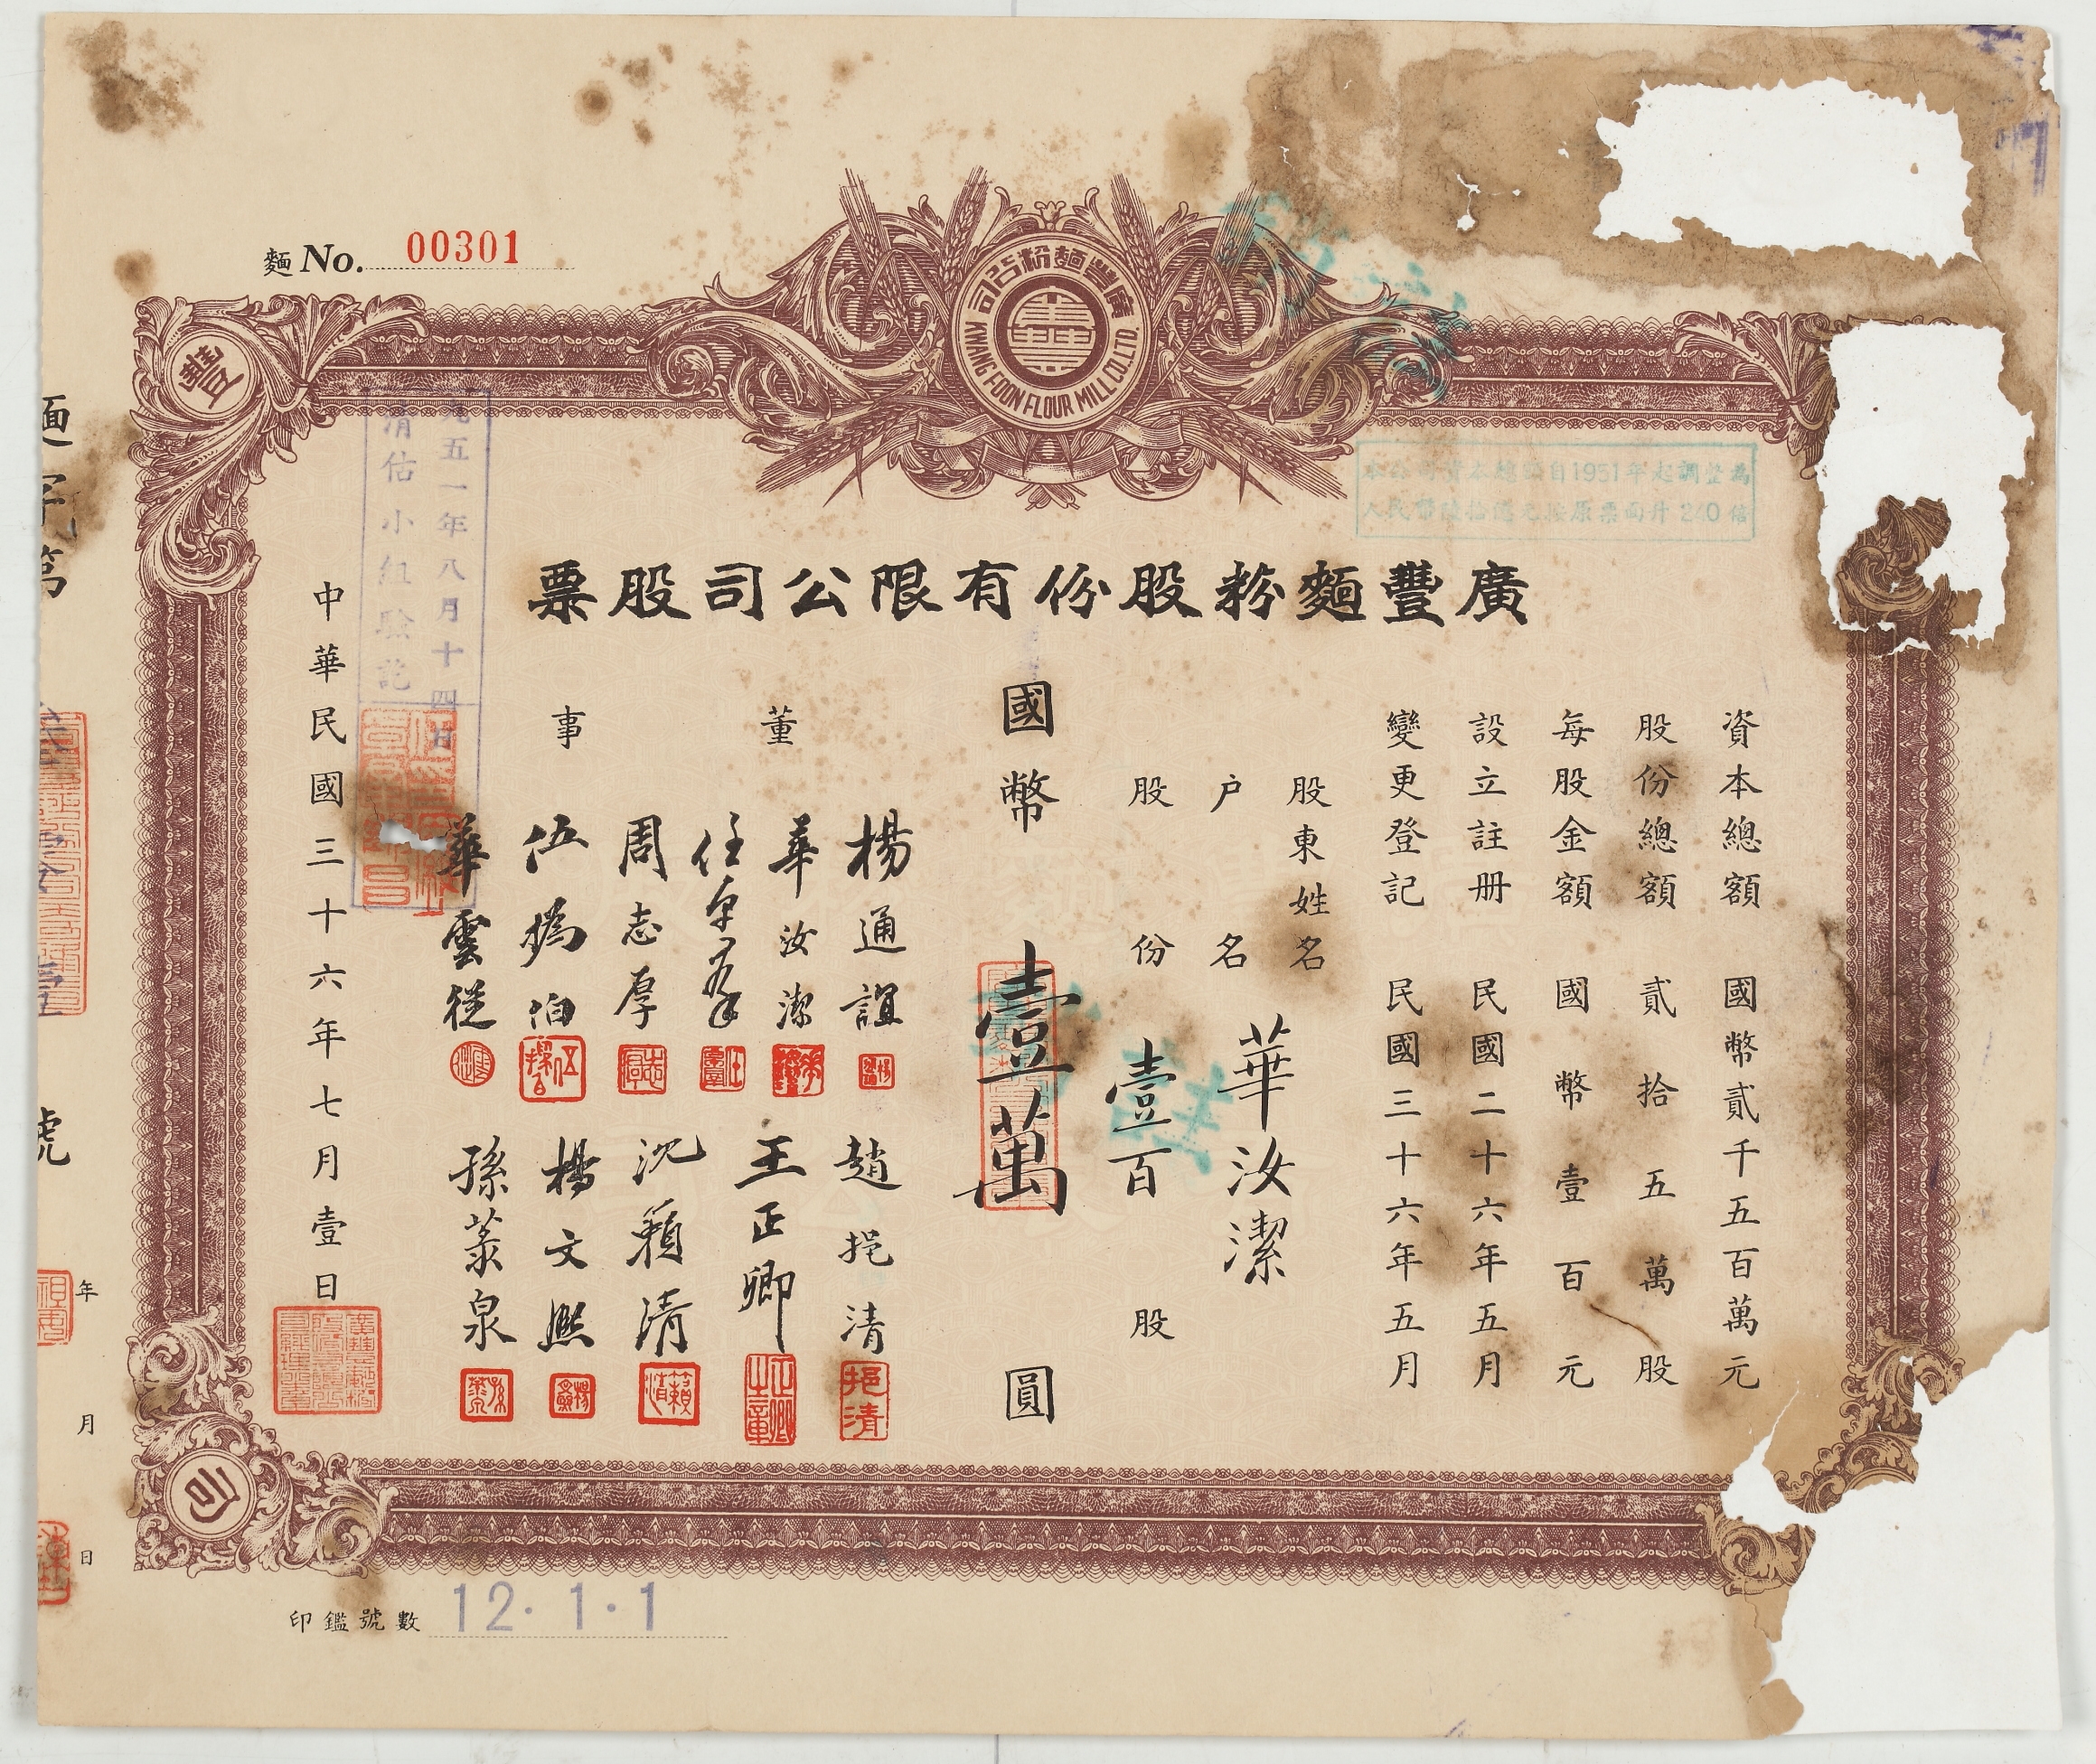 麵 No. 00301
廣豐麵粉公司
KWANG FOON FLOUR MILL CO. LTD.
豐
司
本公司資本總額自1951年起調整為
人民幣陸拾億元按原票面升240倍
廣豐麵粉股份有限公司股票
資本總額 國幣貳千五百萬元
股份總額 貳拾五萬股
每股金額 國幣壹百元
設立註册 民國二十六年五月
變更登記 民國三十六年五月
股東姓名
户名 華汝潔
股份 壹百股
國幣 壹萬 圓
董事
楊通誼
華汝潔
任卓羣
周志厚
伍撝伯
華雲從
趙挹清
挹清
王正卿
沈籟清
籟清
楊文熙
孫蒸泉
中華民國三十六年七月壹日
九五一年八月十四日
清估小組驗訖
麵字第 號
年 月 日
印鑑號數 12·1·1